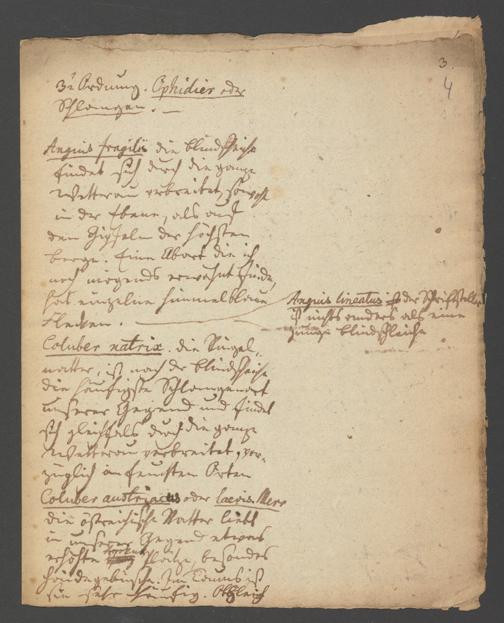 3.
4
3te Ordnung. Ophidier oder
Schlangen. —
Anguis fragilis die Blindschleiche
findet sich durch die ganze
Wetterau verbreitet, sowohl
in der Ebene, als auf
den Gipfeln der höchsten
Berge. Eine Abart die ich
noch nirgends erwähnt finde,
hat einzelne himmelblaue
Flecken. —
Anguis lineatus der Schriftsteller
ist nichts anders als eine
junge Blindschleiche
Coluber natrix. die Ringel-
natter, ist nach der Blindschleiche
die häufigste Schlangenart
unserer Gegend und findet
sich gleichfals durch die ganze
Wetterau verbreitet, vor-
züglich an feuchten Orten
Coluber austriacus oder laevis. Merr
die östreichische Natter liebt
in unserer Gegend etwas
erhöhte Plätze, besonders
Haidegebüsche. Im Taunus ist
sie sehr häufig. Obgleich